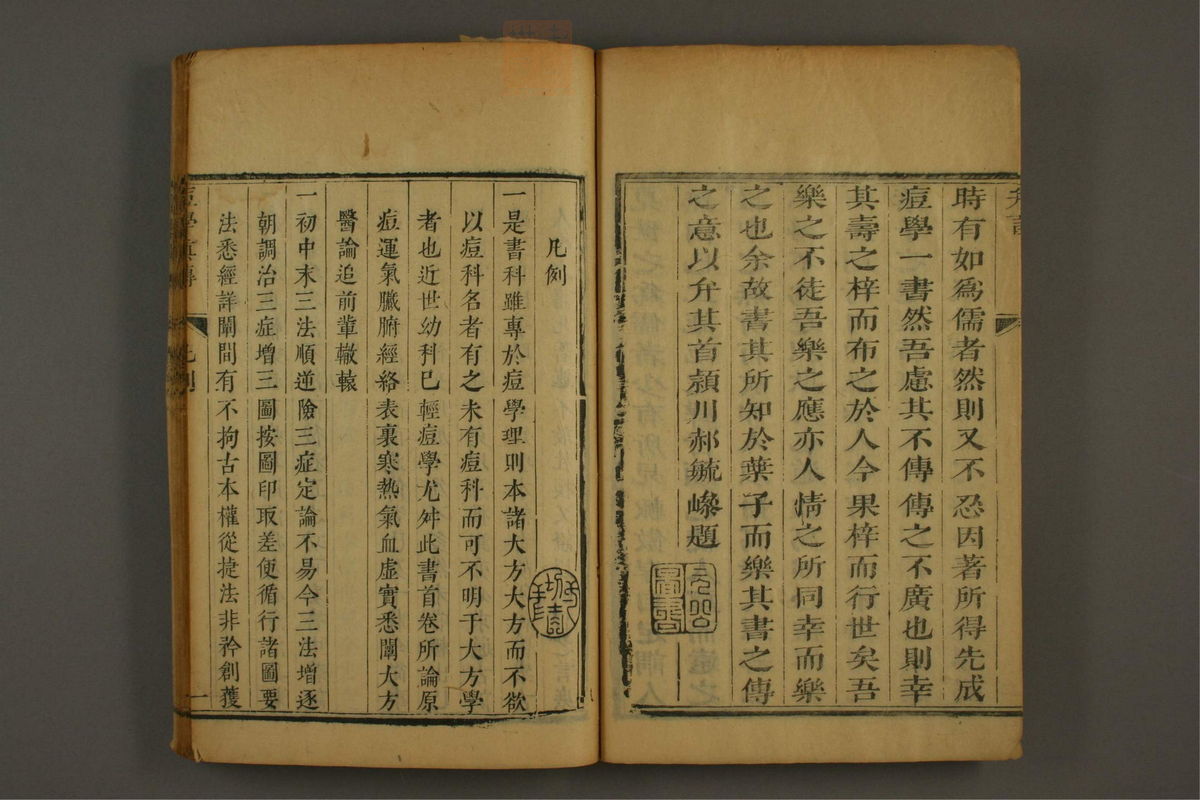 弁言
時有如爲儒者然則又不忍因著所得先成
痘學一書然吾慮其不傳傳之不廣也則幸
其壽之梓而布之於人今果梓而行世矣吾
樂之不徒吾樂之應亦人情之所同幸而樂
之也余故書其所知於葉子而樂其書之傳
之意以弁其首潁川郝毓嵾題
痘學眞傳
凡例
凡例
一是書科雖專於痘學理則本諸大方大方而不欲
以痘科名者有之未有痘科而可不明于大方學
者也近世幼科已輕痘學尤舛此書首卷所論原
痘運氣臟腑經絡表裏寒熱氣血虛實悉闡大方
醫論追前輩轍轅
一初中末三法順逆險三症定論不易今三法增逐
朝調治三症增三圖按圖印取差便循行諸圖要
法悉經詳闡間有不拘古本權從捷法非矜創獲
一